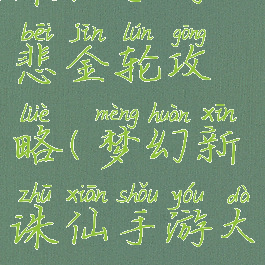 bēi jīn lún gōng
悲金轮攻
lüè mèng huàn xīn
略(梦幻新
zhū xiān shǒu yóu dà
诛仙手游大